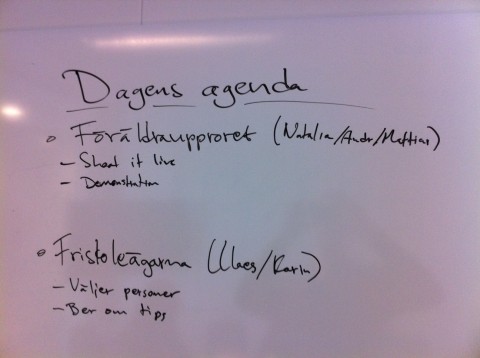 Dagens agenda
Föräldraupproret (Natalia/Andr/Mattias)
- Shoot it live
- Demonstration
Friskoleägarna (Claes/Karin)
- Väljer personer
- Ber om tips